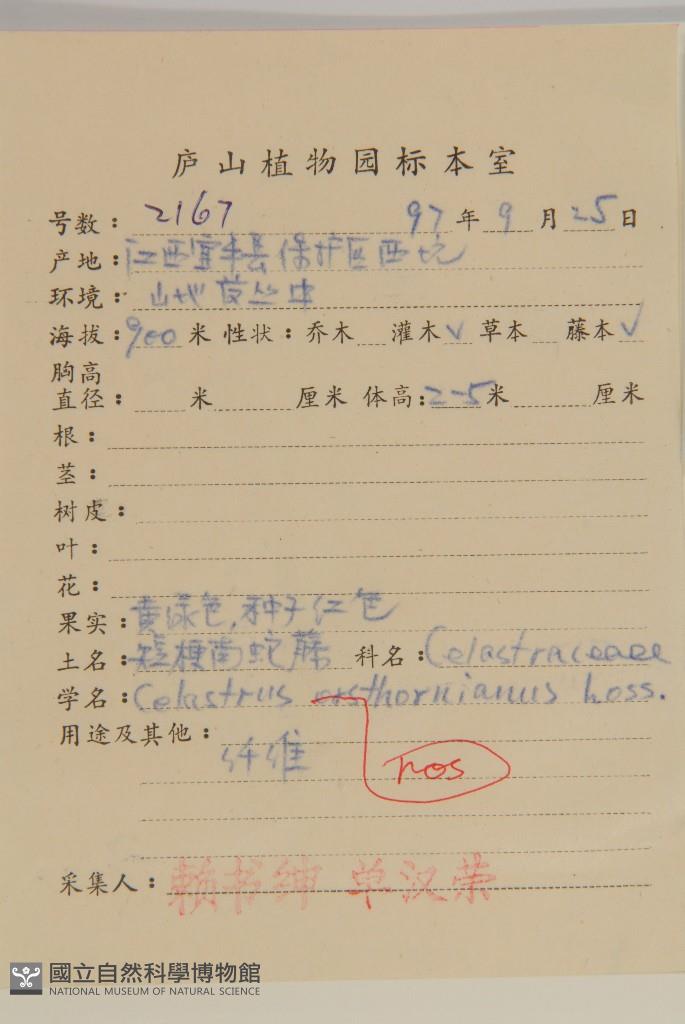 庐山植物园标本室
号数：2167 97年9月25日
产地：江西宜丰县保护区西坑
环境：山地灌丛中
海拔：900米 性状：乔木 灌木√ 草本 藤本√
胸高
直径： 米 厘米 体高：2-5米 厘米
根：
茎：
树皮：
叶：
花：
果实：黄绿色，种子红色
土名：短梗南蛇藤 科名：Celastraceae
学名：Celastrus rosthornianus Loes.
用途及其他：
纤维
ros
采集人：赖书绅 单汉荣
國立自然科學博物館
NATIONAL MUSEUM OF NATURAL SCIENCE